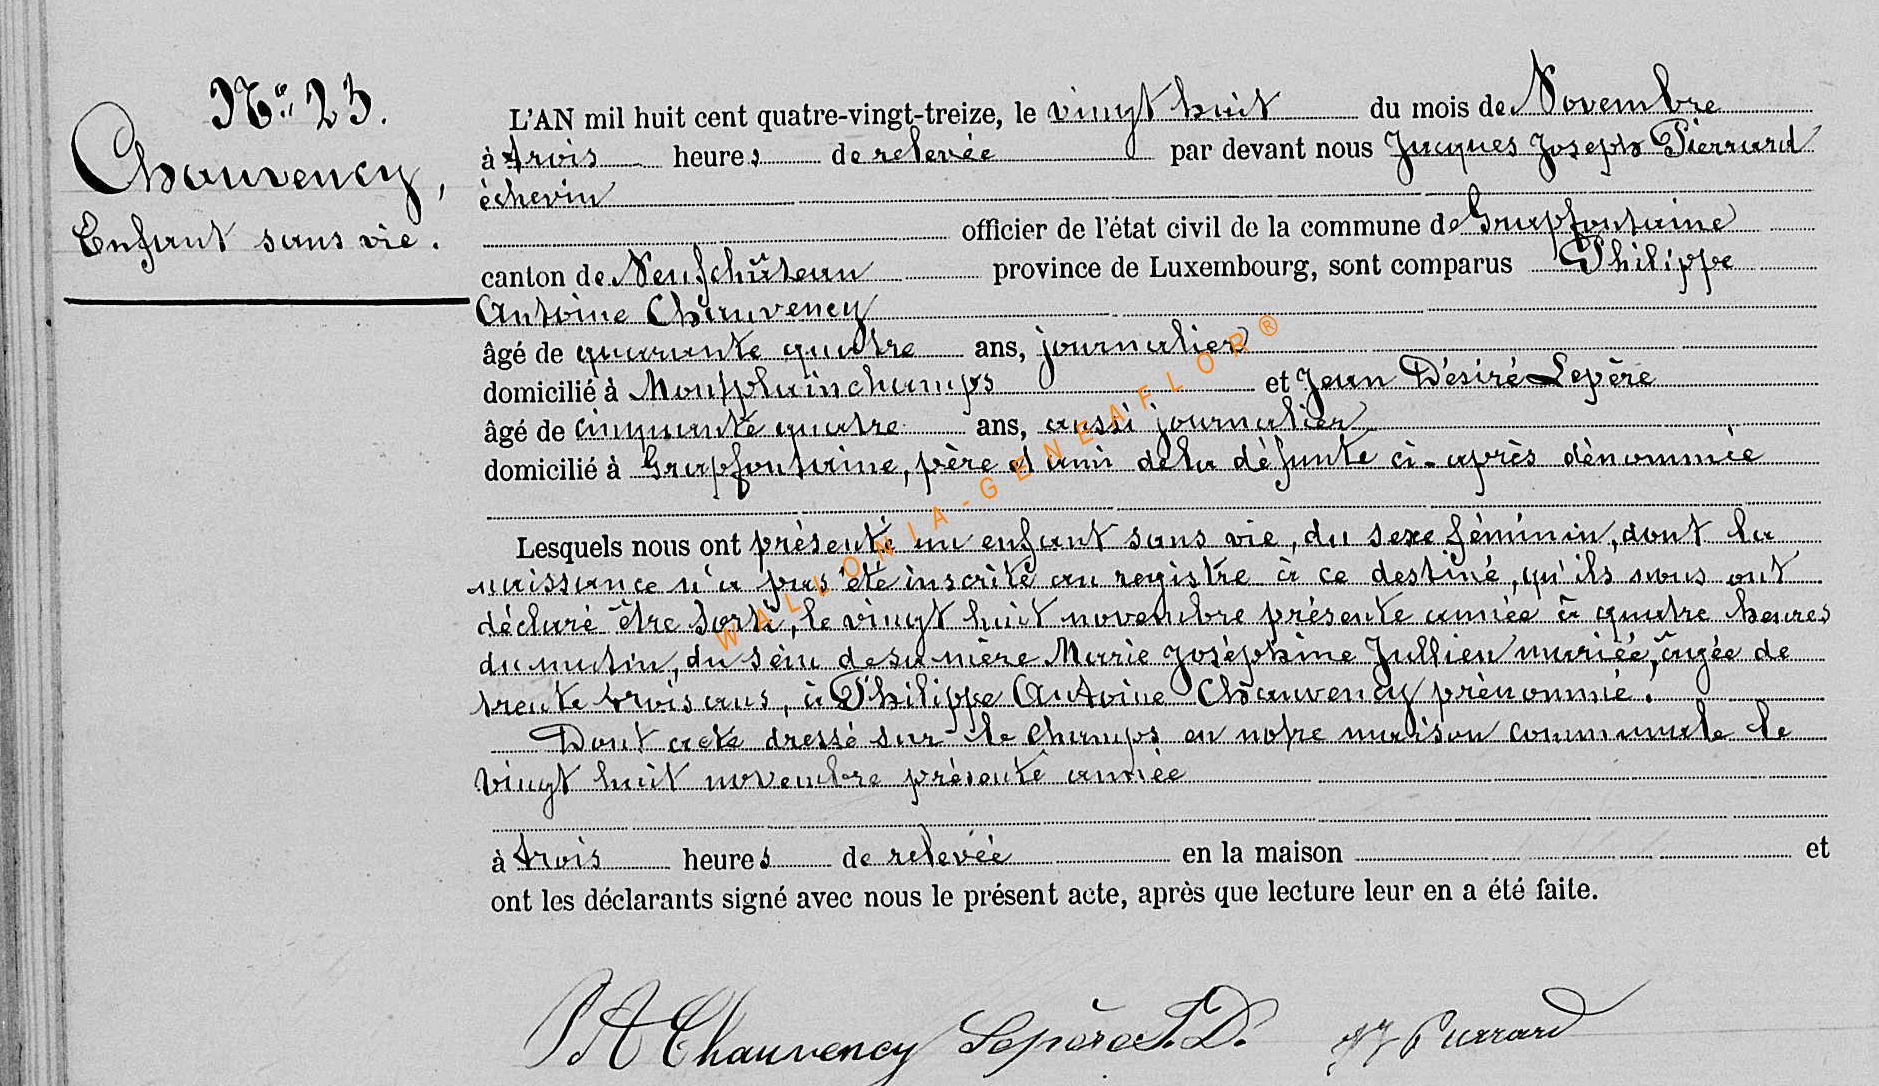 No. 23.
Chauvency,
Enfant sans vie.
L'AN mil huit cent quatre-vingt-treize, le vingt huit du mois de Novembre
à trois heures de relevée par devant nous Jacques Joseph Pierrard
échevin
officier de l'état civil de la commune de Grapfontaine
canton de Neufchâteau province de Luxembourg, sont comparus Philippe
Antoine Chauvency
âgé de quarante quatre ans, journalier
domicilié à Montplainchamps et Jean Désiré Lepère
âgé de cinquante quatre ans, aussi journalier
domicilié à Grapfontaine, père et ami de la défunte ci-après dénommée
Lesquels nous ont présenté un enfant sans vie, du sexe féminin, dont la
naissance n'a pas été inscrite au registre à ce destiné, qu'ils nous ont
déclaré être sorti, le vingt huit novembre présente année à quatre heures
du matin, du sein de sa mère Marie Joséphine Jullien mariée, âgée de
trente trois ans, à Philippe Antoine Chauvency prénommé.
Dont acte dressé sur le champs en notre maison communale le
vingt huit novembre présente année
à trois heures de relevée en la maison et
ont les déclarants signé avec nous le présent acte, après que lecture leur en a été faite.
PA Chauvency Lepère J.D. JJ Pierrard
WALLONIA-GENEAFLOR®